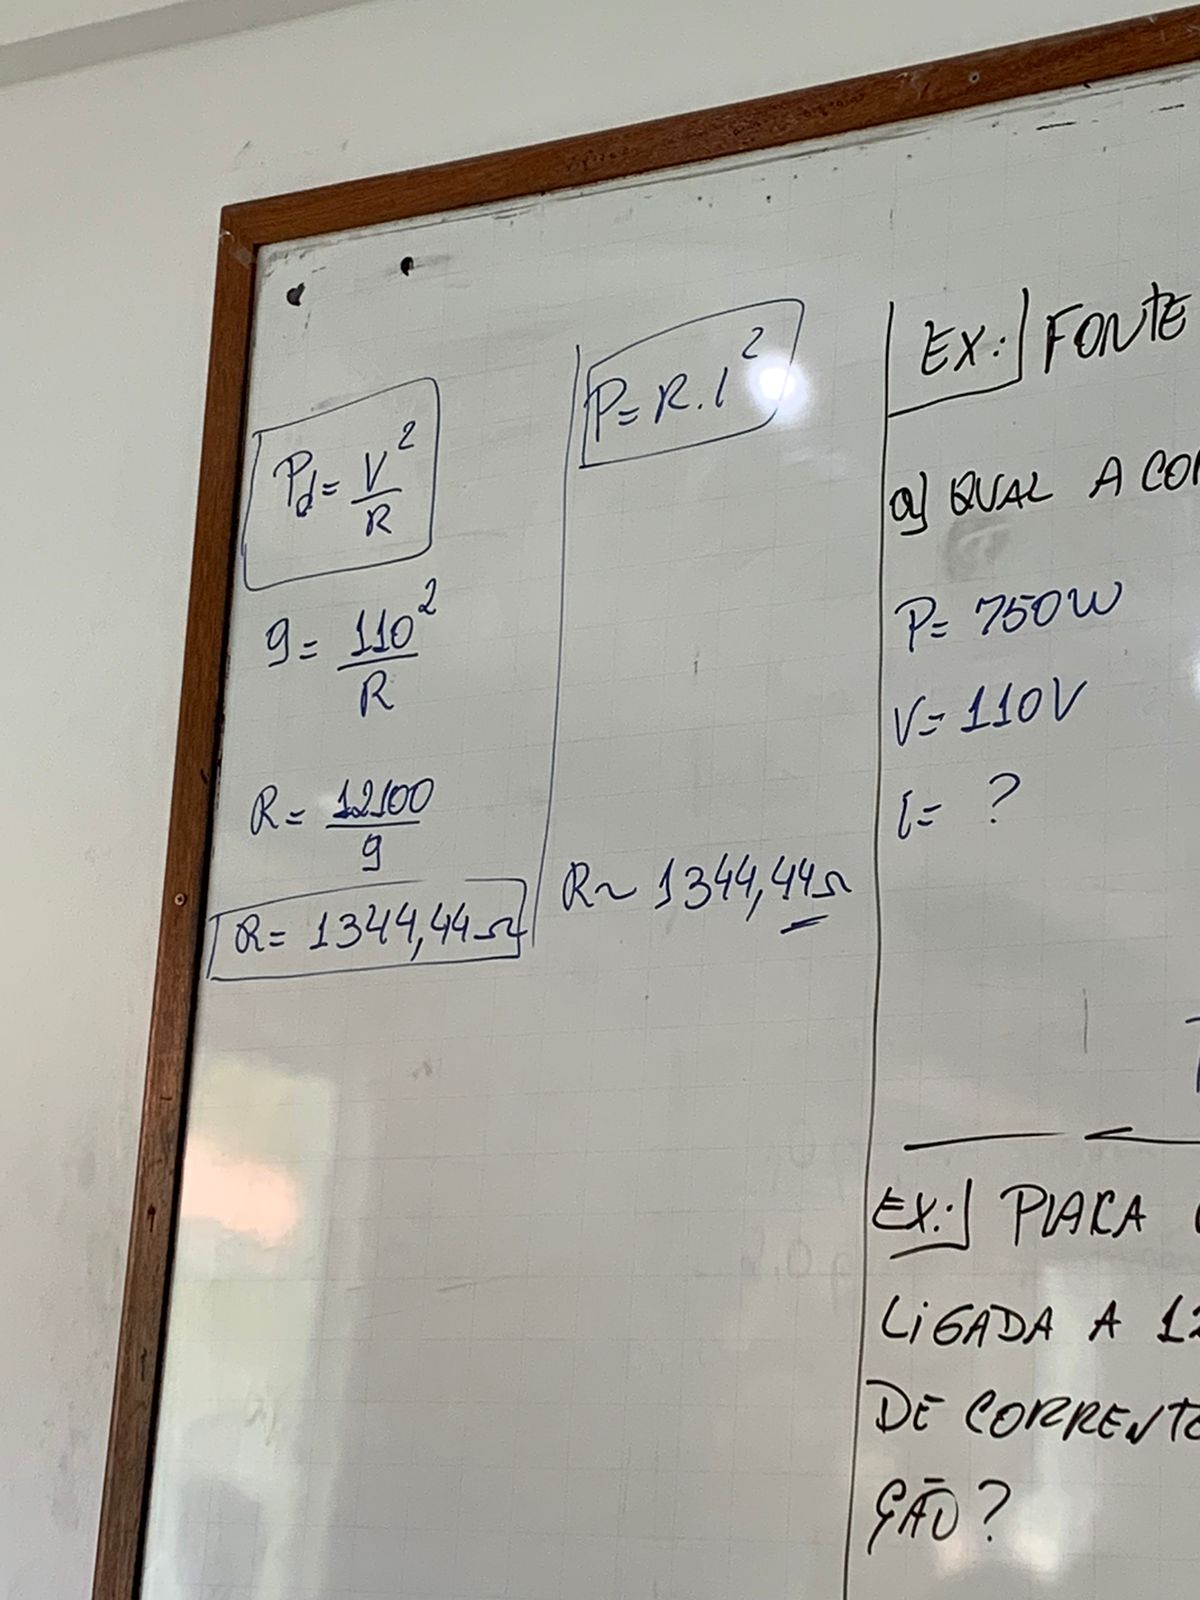 Pd = V²/R
9 = 110²/R
R = 12100/9
R = 1344,44Ω
P = R.I²
R ~ 1344,44Ω
EX:] FONTE
a) QUAL A COR
P = 750W
V = 110V
I = ?
EX.:] PLACA
LIGADA A 12
DE CORRENTE
ÇÃO?